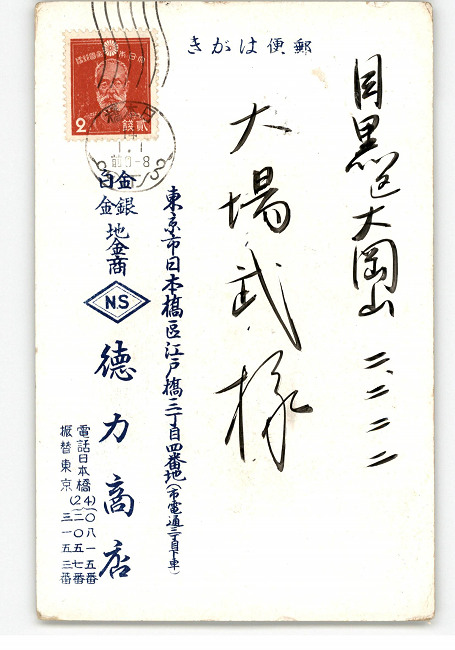 郵便はがき
目黒区大岡山二、二二二二
大場武様
東京市日本橋区江戸橋三丁目四番地(市電通三丁目下車)
金銀
白金
地金商
N.S
徳力商店
電話日本橋(24)〇八一五番
二〇五七番
振替東京三一五三番
2
貳銭
14
1.1
前0-8